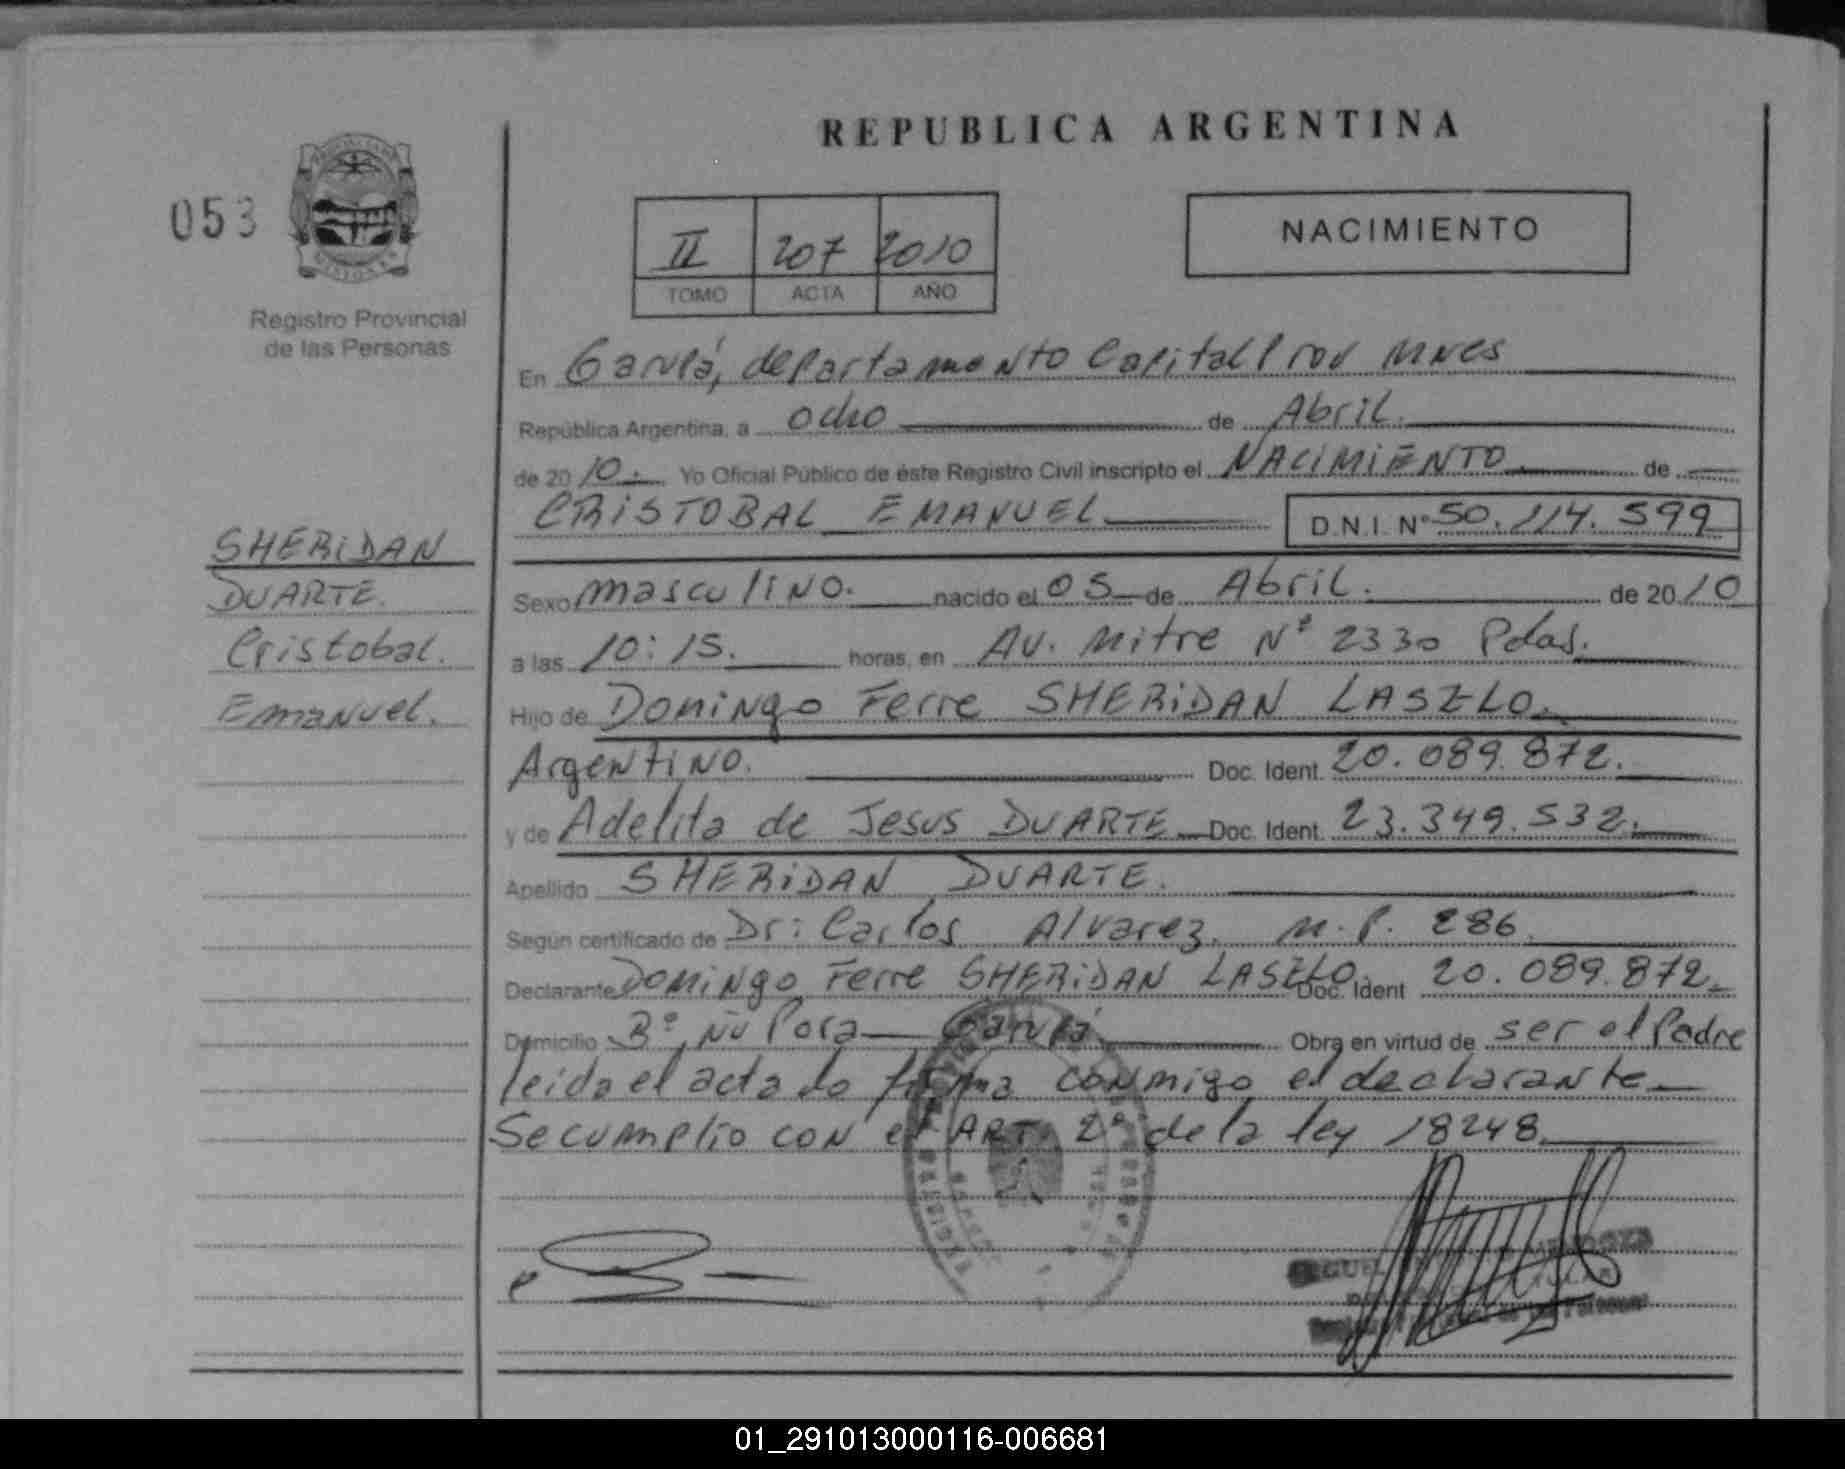 REPUBLICA ARGENTINA
053
II 207 2010
TOMO ACTA AÑO
NACIMIENTO
MISIONES
Registro Provincial
de las Personas
En Garupá, departamento Capital Prov Mnes
República Argentina, a ocho de Abril.
de 2010. Yo Oficial Público de éste Registro Civil inscripto el NACIMIENTO de
CRISTOBAL EMANUEL D.N.I. Nº 50.114.599
SHERIDAN
DUARTE.
Cristobal.
Emanuel.
Sexo masculino. nacido el 05 de Abril. de 2010
a las 10:15. horas, en Av. Mitre Nº 2330 Pdas.
Hijo de Domingo Ferre SHERIDAN LASZLO.
Argentino. Doc. Ident. 20.089.872.
y de Adelita de Jesus DUARTE Doc. Ident. 23.349.532.
Apellido SHERIDAN DUARTE.
Según certificado de Dr: Carlos Alvarez. M.P. 286.
Declarante Domingo Ferre SHERIDAN LASZLO. Doc. Ident 20.089.872.
Domicilio Bº Ñu Pora Garupá Obra en virtud de ser el Padre
leida el acta la firma conmigo el declarante
Se cumplio con el ART. 2º de la ley 18248.
MENDOZA
01_291013000116-006681